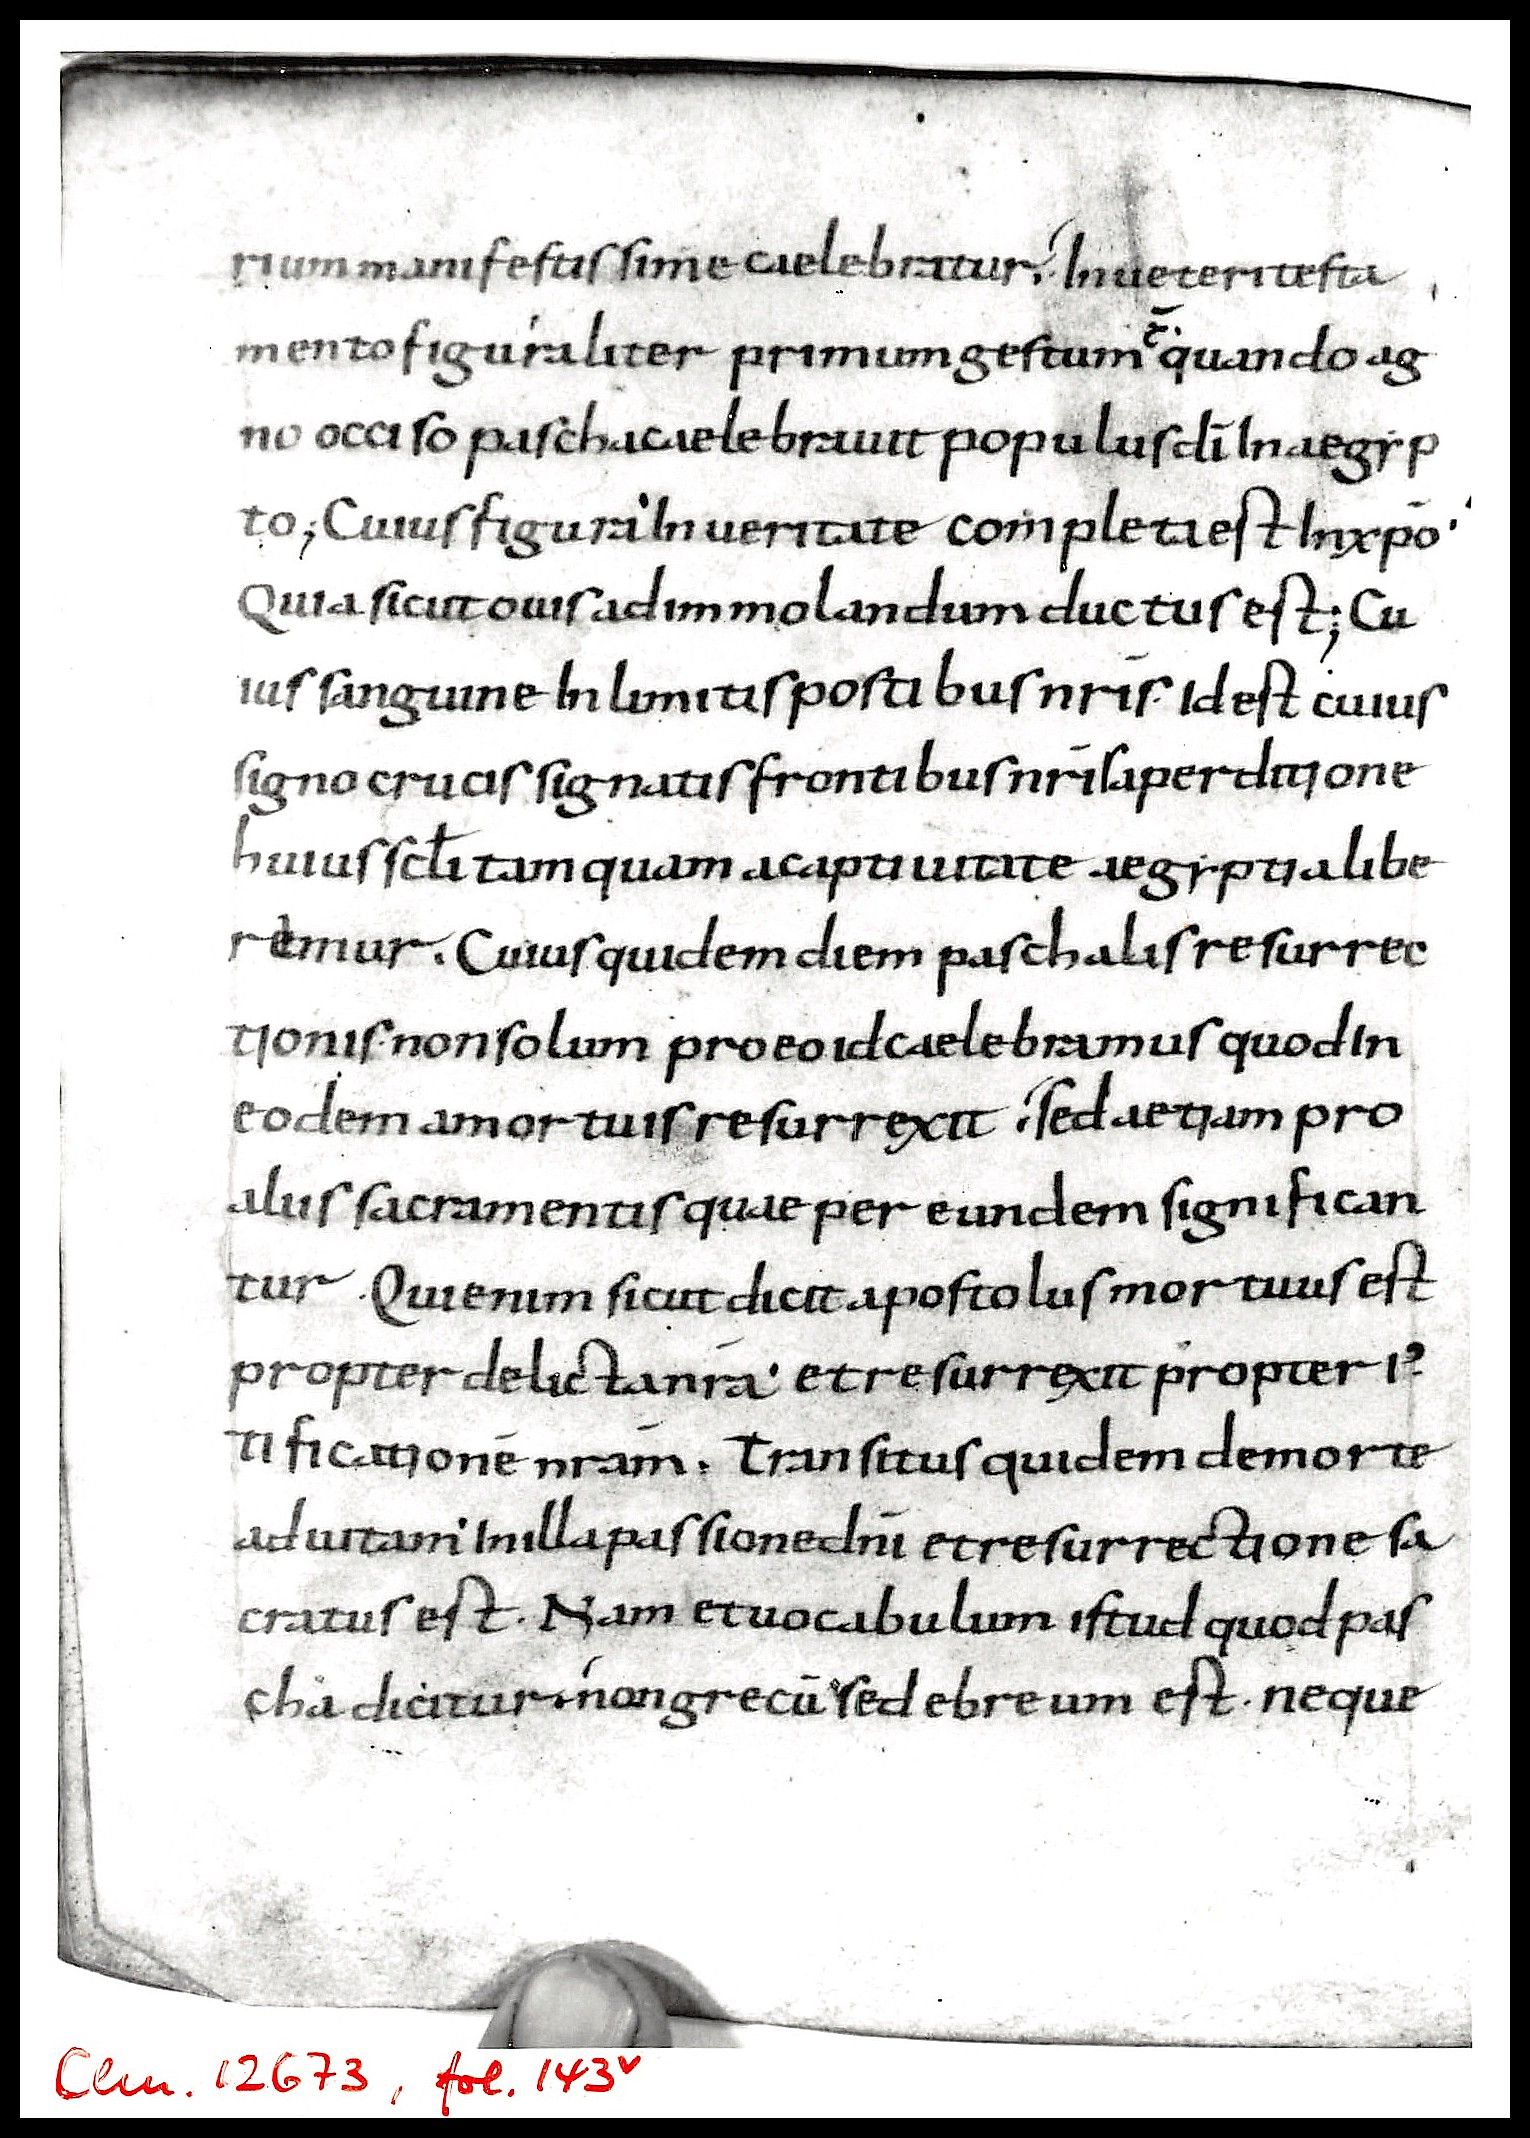 rium manifestissime caelebratur; In ueteri testa
mento figuraliter primum gestum ē quando ag
no occiso pascha caelebrauit populus dī In aegyp
to; Cuius figura In ueritate completa est In xpō
Quia sicut ouis ad immolandum ductus est; Cu
ius sanguine In linitis postibus nrīs. Id est cuius
signo crucis signatis frontibus nrīs a perditione
huius scłi tamquam a captiuitate aegyptia libe
remur. Cuius quidem diem paschalis resurrec
tionis. non solum pro eo id caelebramus quod In
eodem a mortuis resurrexit; sed aetiam pro
aliis sacramentis quae per eundem significan
tur. Qui enim sicut dicit apostolus mortuus est
propter delicta nrā. et resurrexit propter i᾽
tificationē nrām. Transitus quidem de morte
ad uitam In illa passione dnī et resurrectione sa
cratus est. Nam et uocabulum istud quod pas
cha dicitur. non grecū sed ebreum est. neque
Clm. 12673, fol. 143v